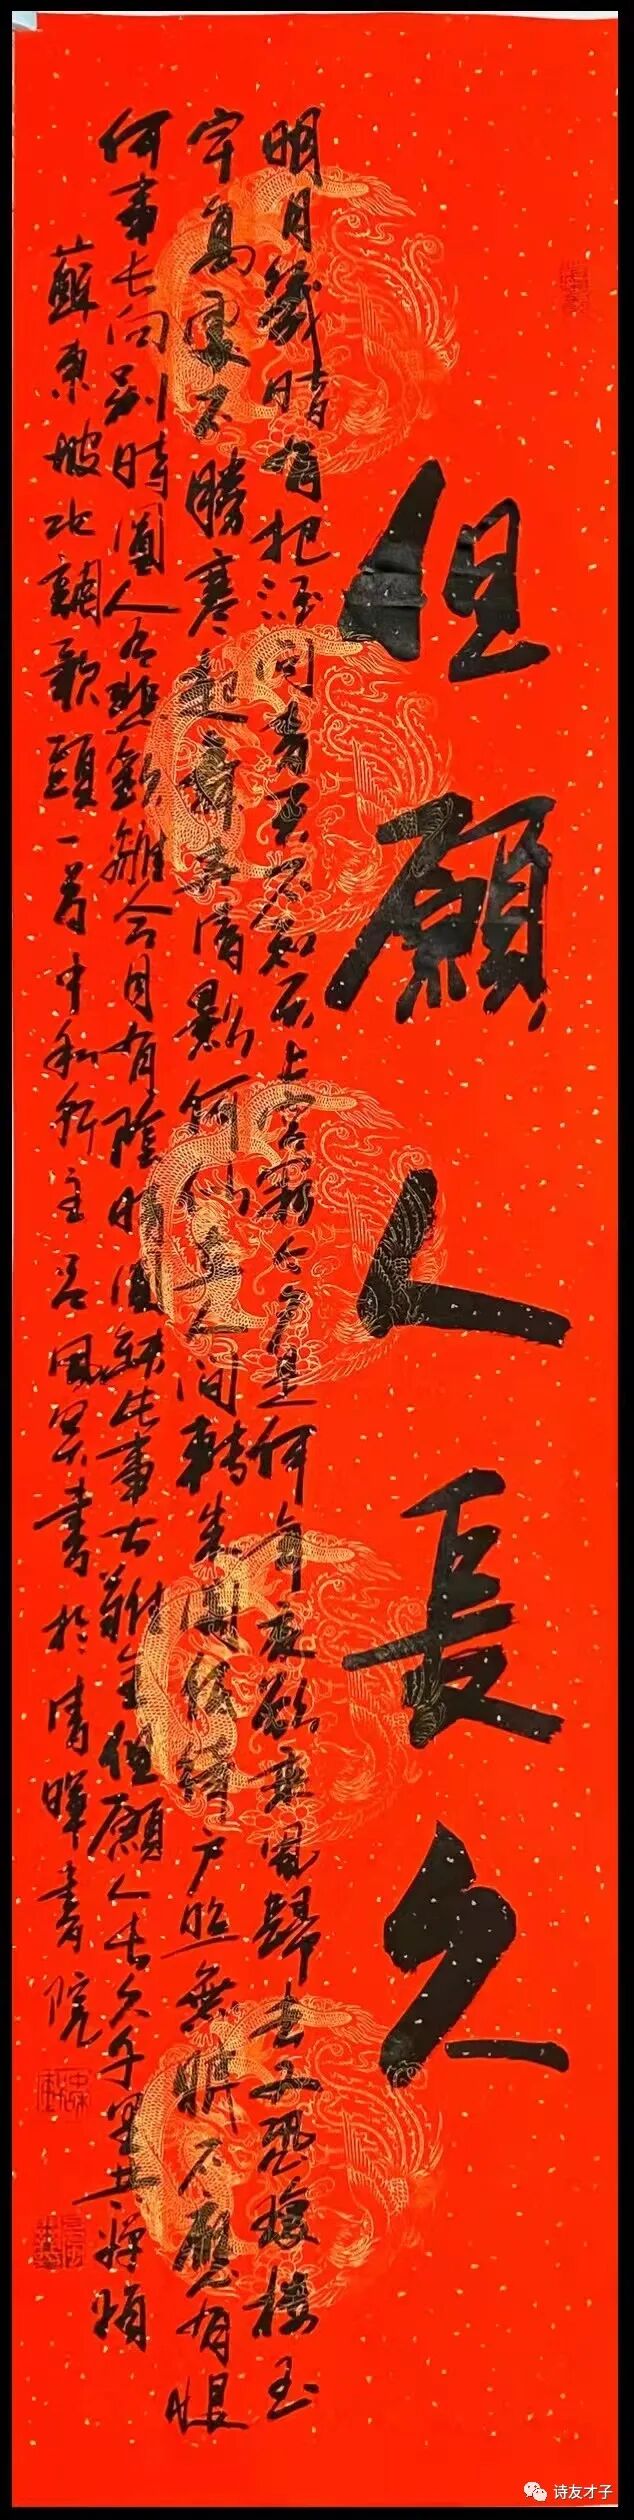 但願人長久
明月幾時有把酒問青天不知天上宮闕今夕是何年我欲乘風歸去又恐瓊樓玉
宇高處不勝寒起舞弄清影何似在人間轉朱閣低綺戶照無眠不應有恨
何事长向别時圓人有悲歡離合月有陰晴圓缺此事古難全但願人长久千里共嬋娟
蘇東坡水調歌頭一首中和軒主書於清暉書院
诗友才子